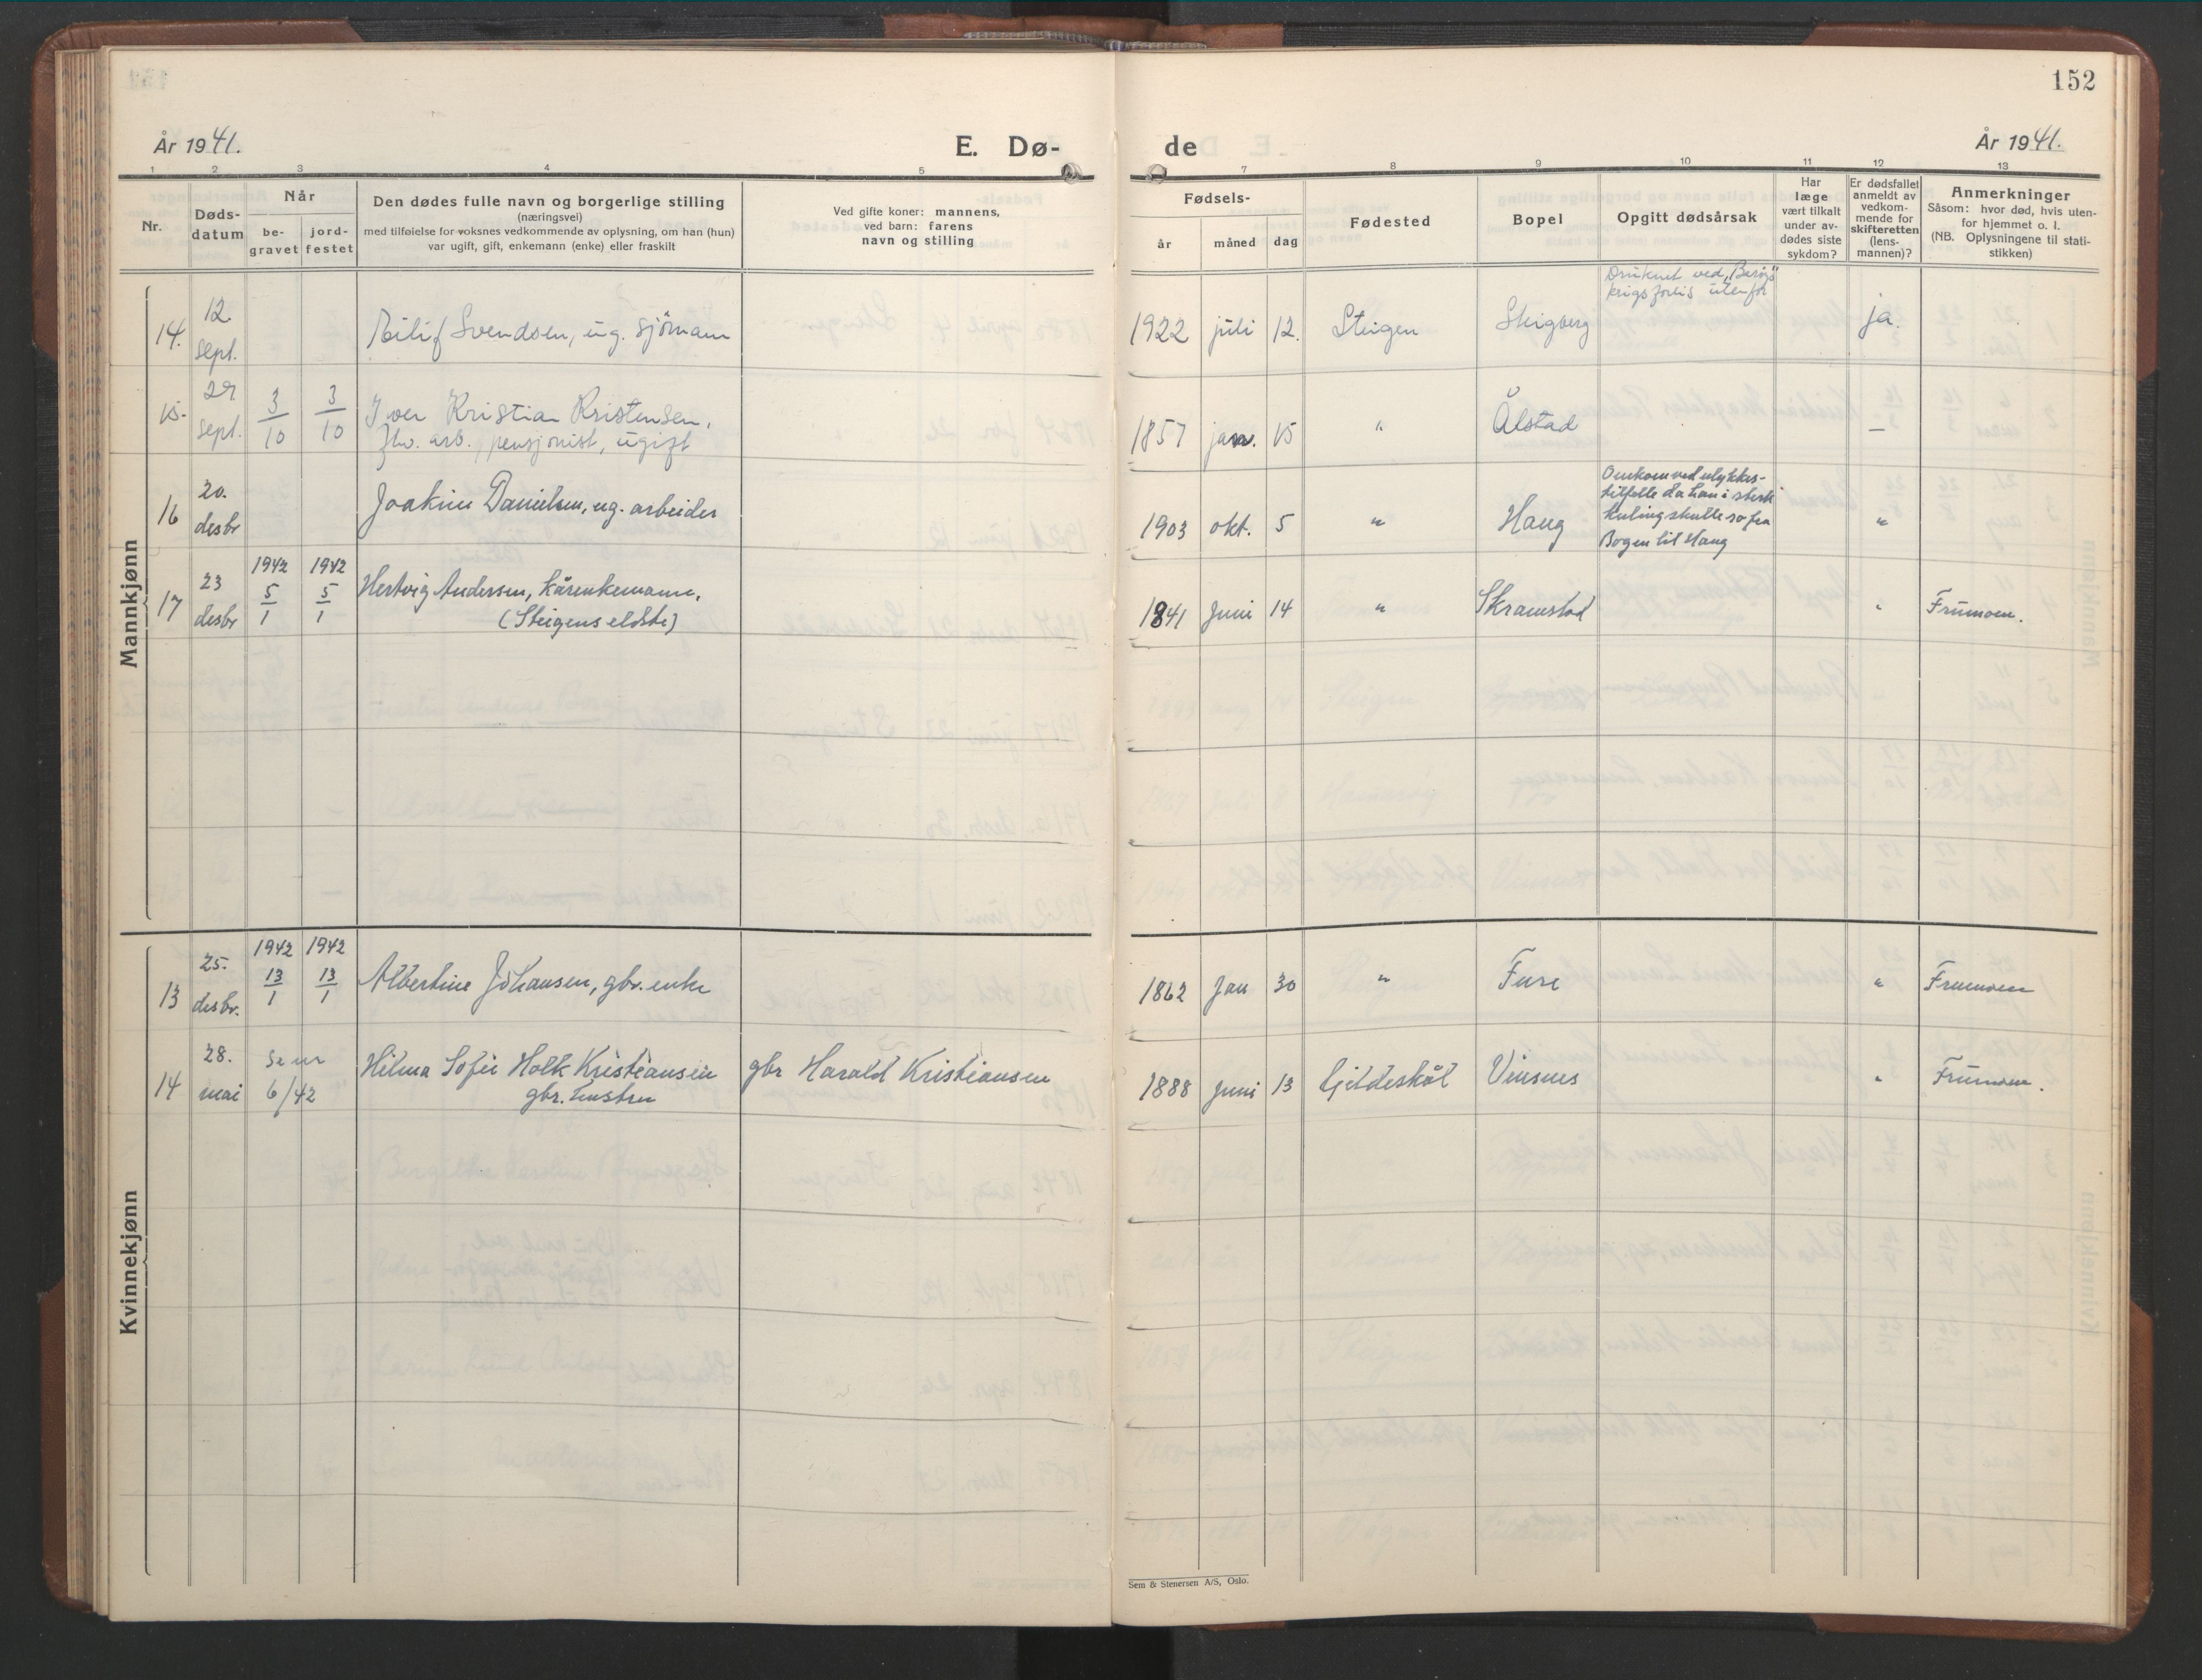 152
År 1941.
E. Dø-
de
År 1941.
1 2 3 4 5 7 8 9 10 11 12 13
Nr.
Døds-
datum
Når
be-
gravet
jord-
festet
Den dødes fulle navn og borgerlige stilling
(næringsvei)
med tilføielse for voksnes vedkommende av oplysning, om han (hun)
var ugift, gift, enkemann (enke) eller fraskilt
Ved gifte koner: mannens,
ved barn: farens
navn og stilling
Fødsels-
år måned dag
Fødested
Bopel
Opgitt dødsårsak
Har
læge
vært tilkalt
under av-
dødes siste
sykdom?
Er dødsfallet
anmeldt av
vedkom-
mende for
skifteretten
(lens-
mannen)?
Anmerkninger
Såsom: hvor død, hvis uten-
for hjemmet o. l.
(NB. Oplysningene til stati-
stikken)
Mannkjønn
14. 12. sept. Eilif Svendsen, ug. sjömann 1922 juli 12. Steigen Skigberg
Druknet ved
krigsforlis utenfor "Barøy"
ja.
15. 29 sept. 3/10 3/10 Iver Kristian Kristensen,
fhv. arb., pensjonist, ugift
1857 jan. 15 " Ålstad —
16 20. desbr Joakim Danielsen, ug. arbeider 1903 okt. 5 " Haug
Omkom ved ulykkes-
tilfelle da han i sterk
kuling skulle ro fra
Bogen til Haug
"
17 23 desbr 1942 5/1 1942 5/1 Hertvig Andersen, kårenkemann,
(Steigens eldste)
1841 Juni 14 " Skramstad " Frumoen.
Kvinnekjønn
13 25. desbr. 1942 13/1 1942 13/1 Albertine Johansen, gbr. enke 1862 Jan 30 " Fure " Frumoen
14 28. mai Se nr 6/42 Hilma Sofie Holk Kristiansen
gbr. hustru
gbr Harald Kristiansen 1888 Juni 13 Gildeskål Vinsnes " Frumoen.
Sem & Stenersen A/S, Oslo.